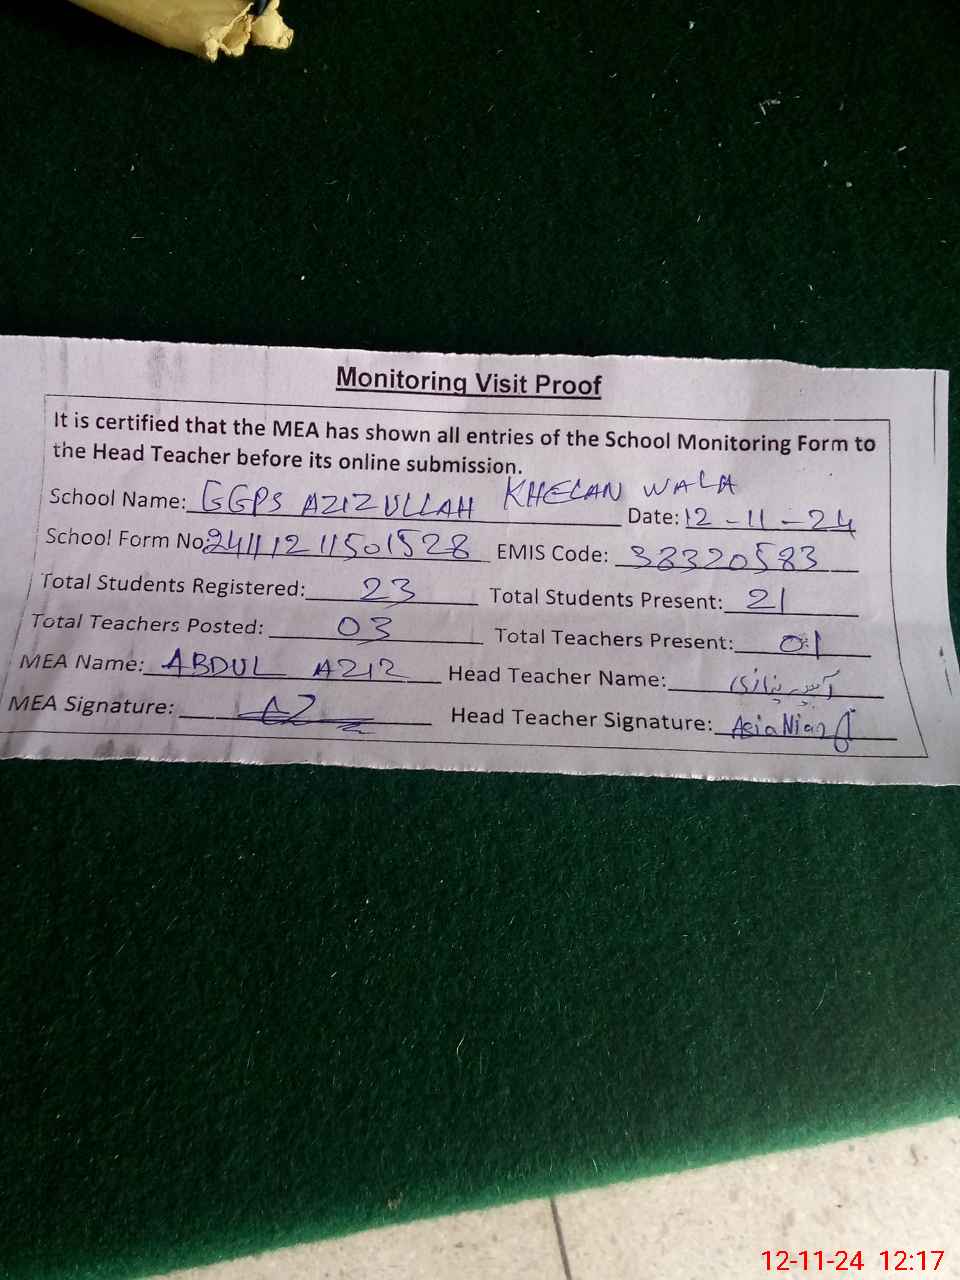 Monitoring Visit Proof
It is certified that the MEA has shown all entries of the School Monitoring Form to
the Head Teacher before its online submission.
School Name: GGPS AZIZULLAH KHELAN WALA Date: 12-11-24
School Form No: 24111211501528 EMIS Code: 38320583
Total Students Registered: 23 Total Students Present: 21
Total Teachers Posted: 03 Total Teachers Present: 01
MEA Name: ABDUL AZIZ Head Teacher Name:
MEA Signature: AZ Head Teacher Signature: Asia Niazi
12-11-24 12:17